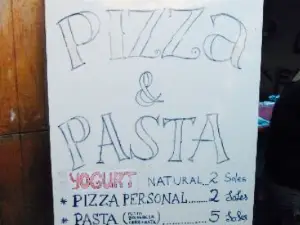 PIZZa
&
PASTA
YOGURT NATURAL_2 Soles
* PIZZA PERSONAL.......2 Soles
* PASTA (.....5 Soles